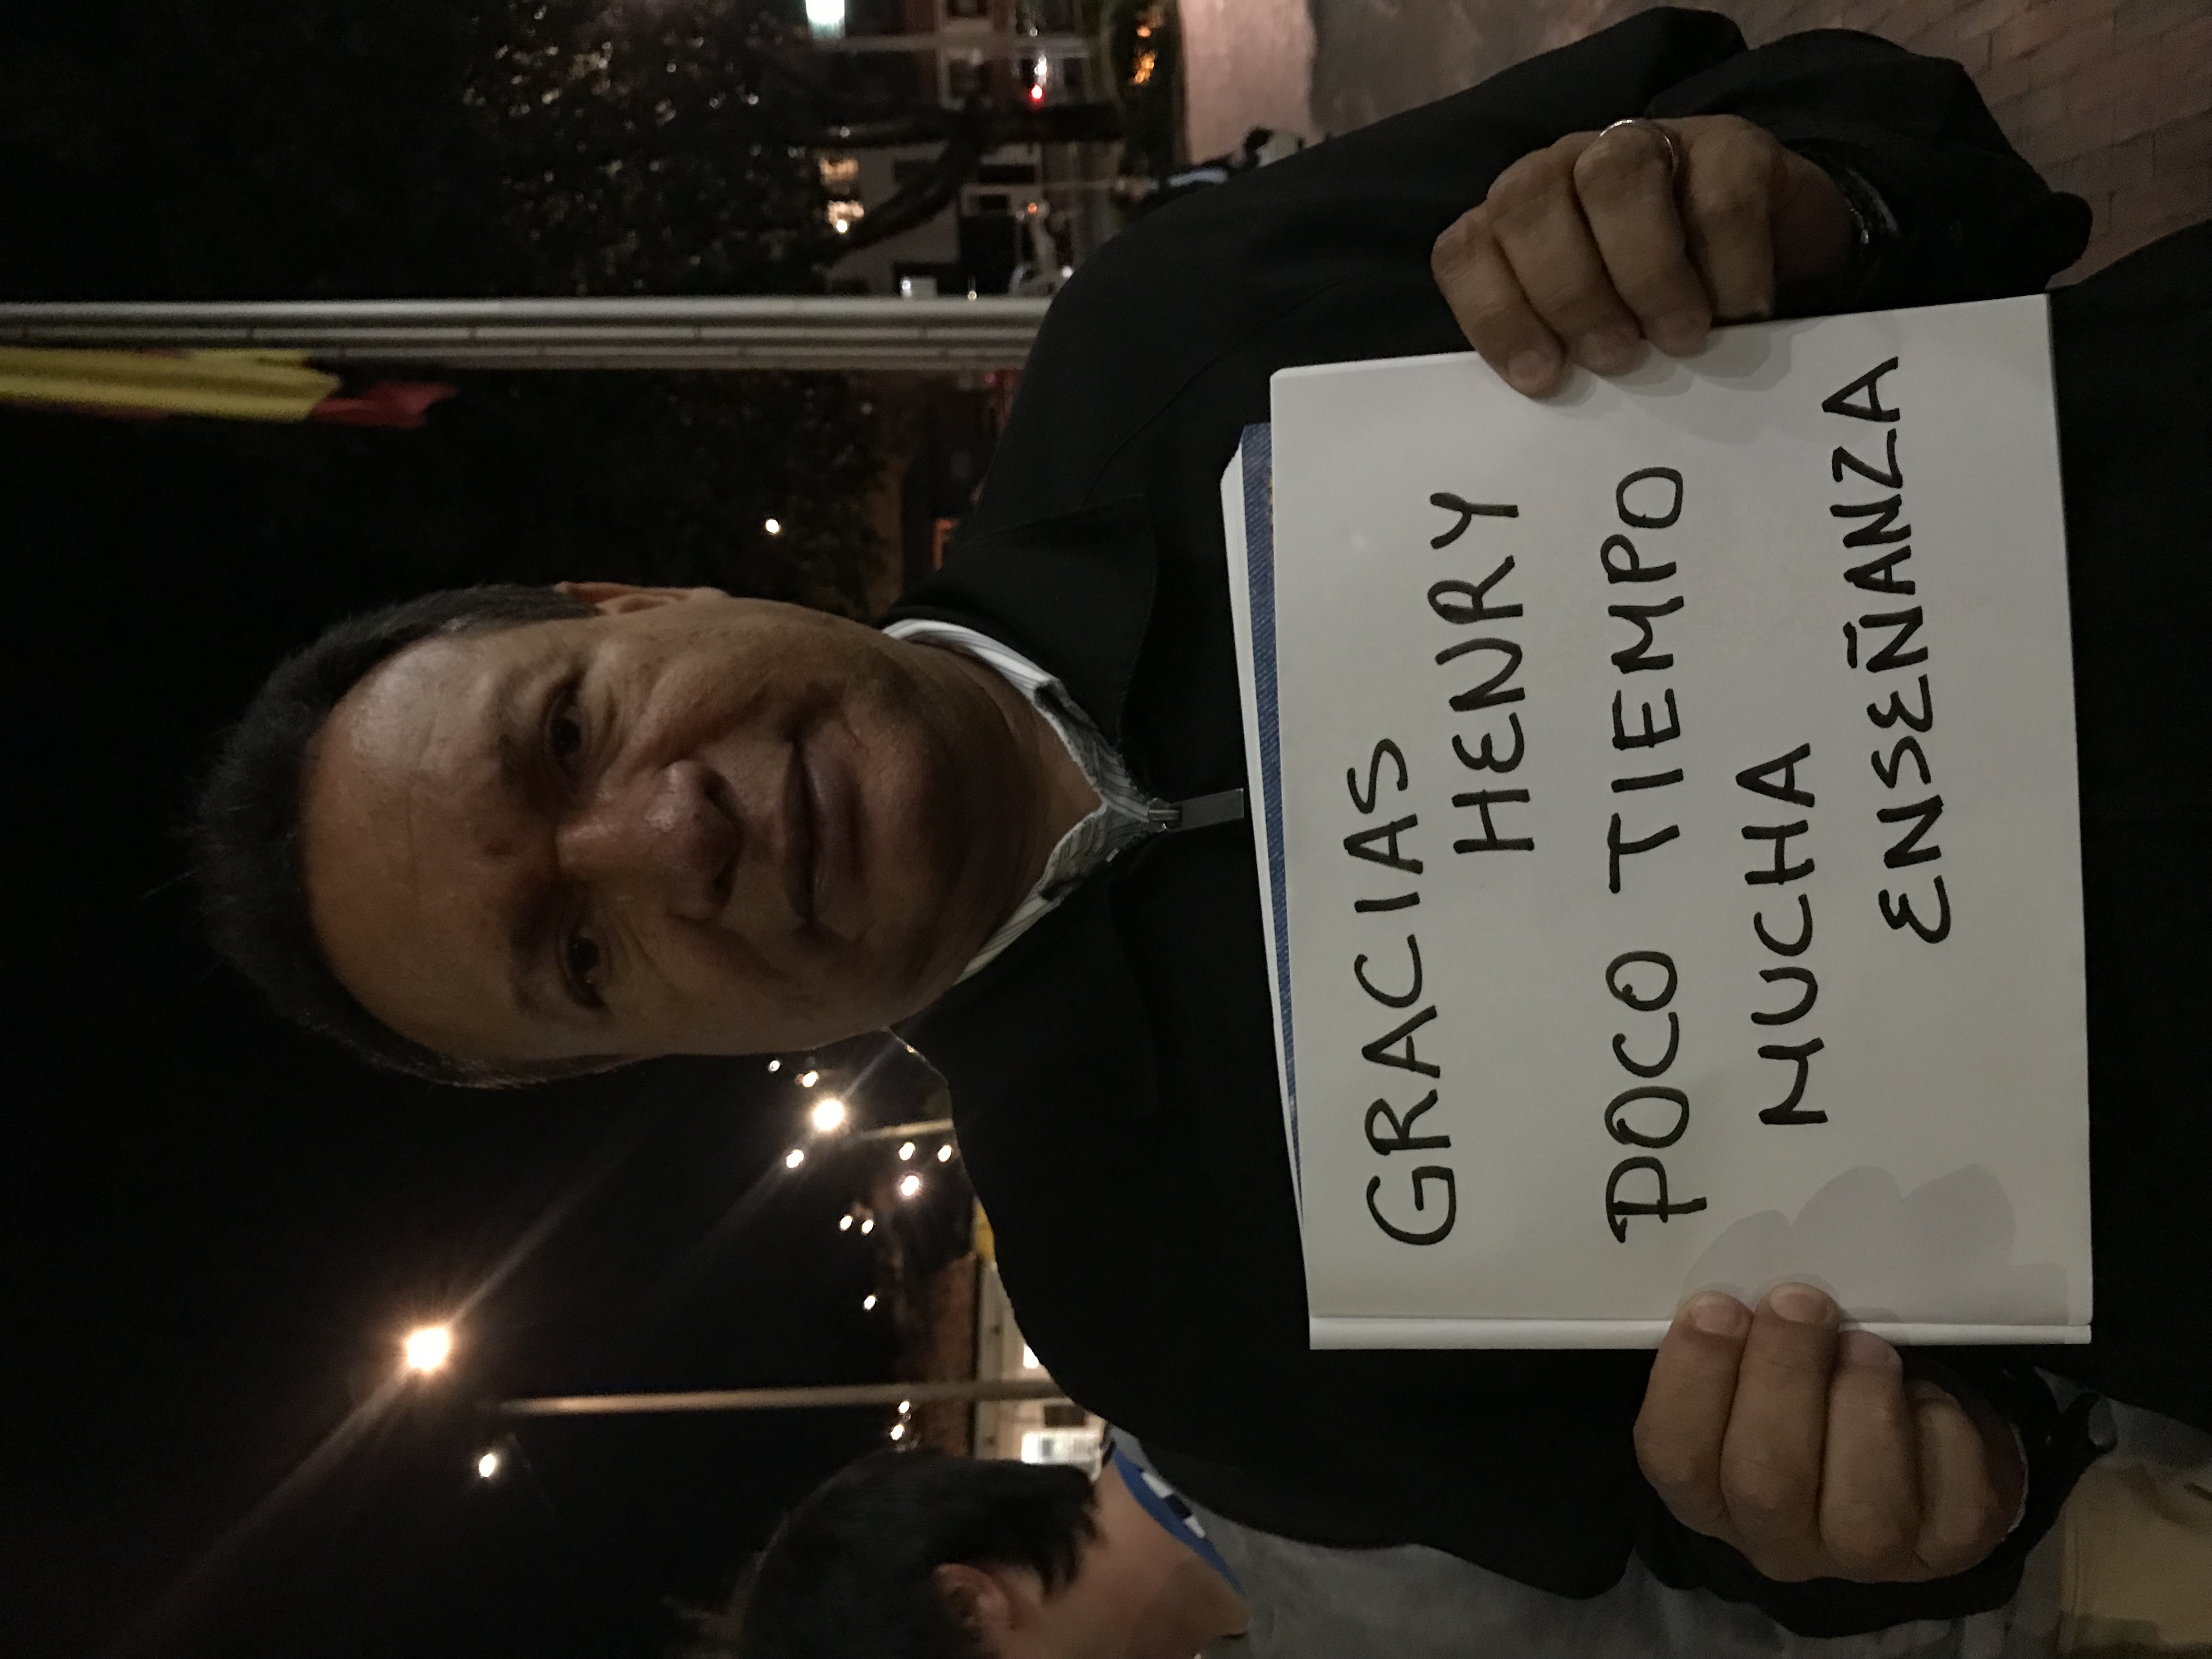 GRACIAS
HENRY
POCO TIEMPO
MUCHA
ENSEÑANZA